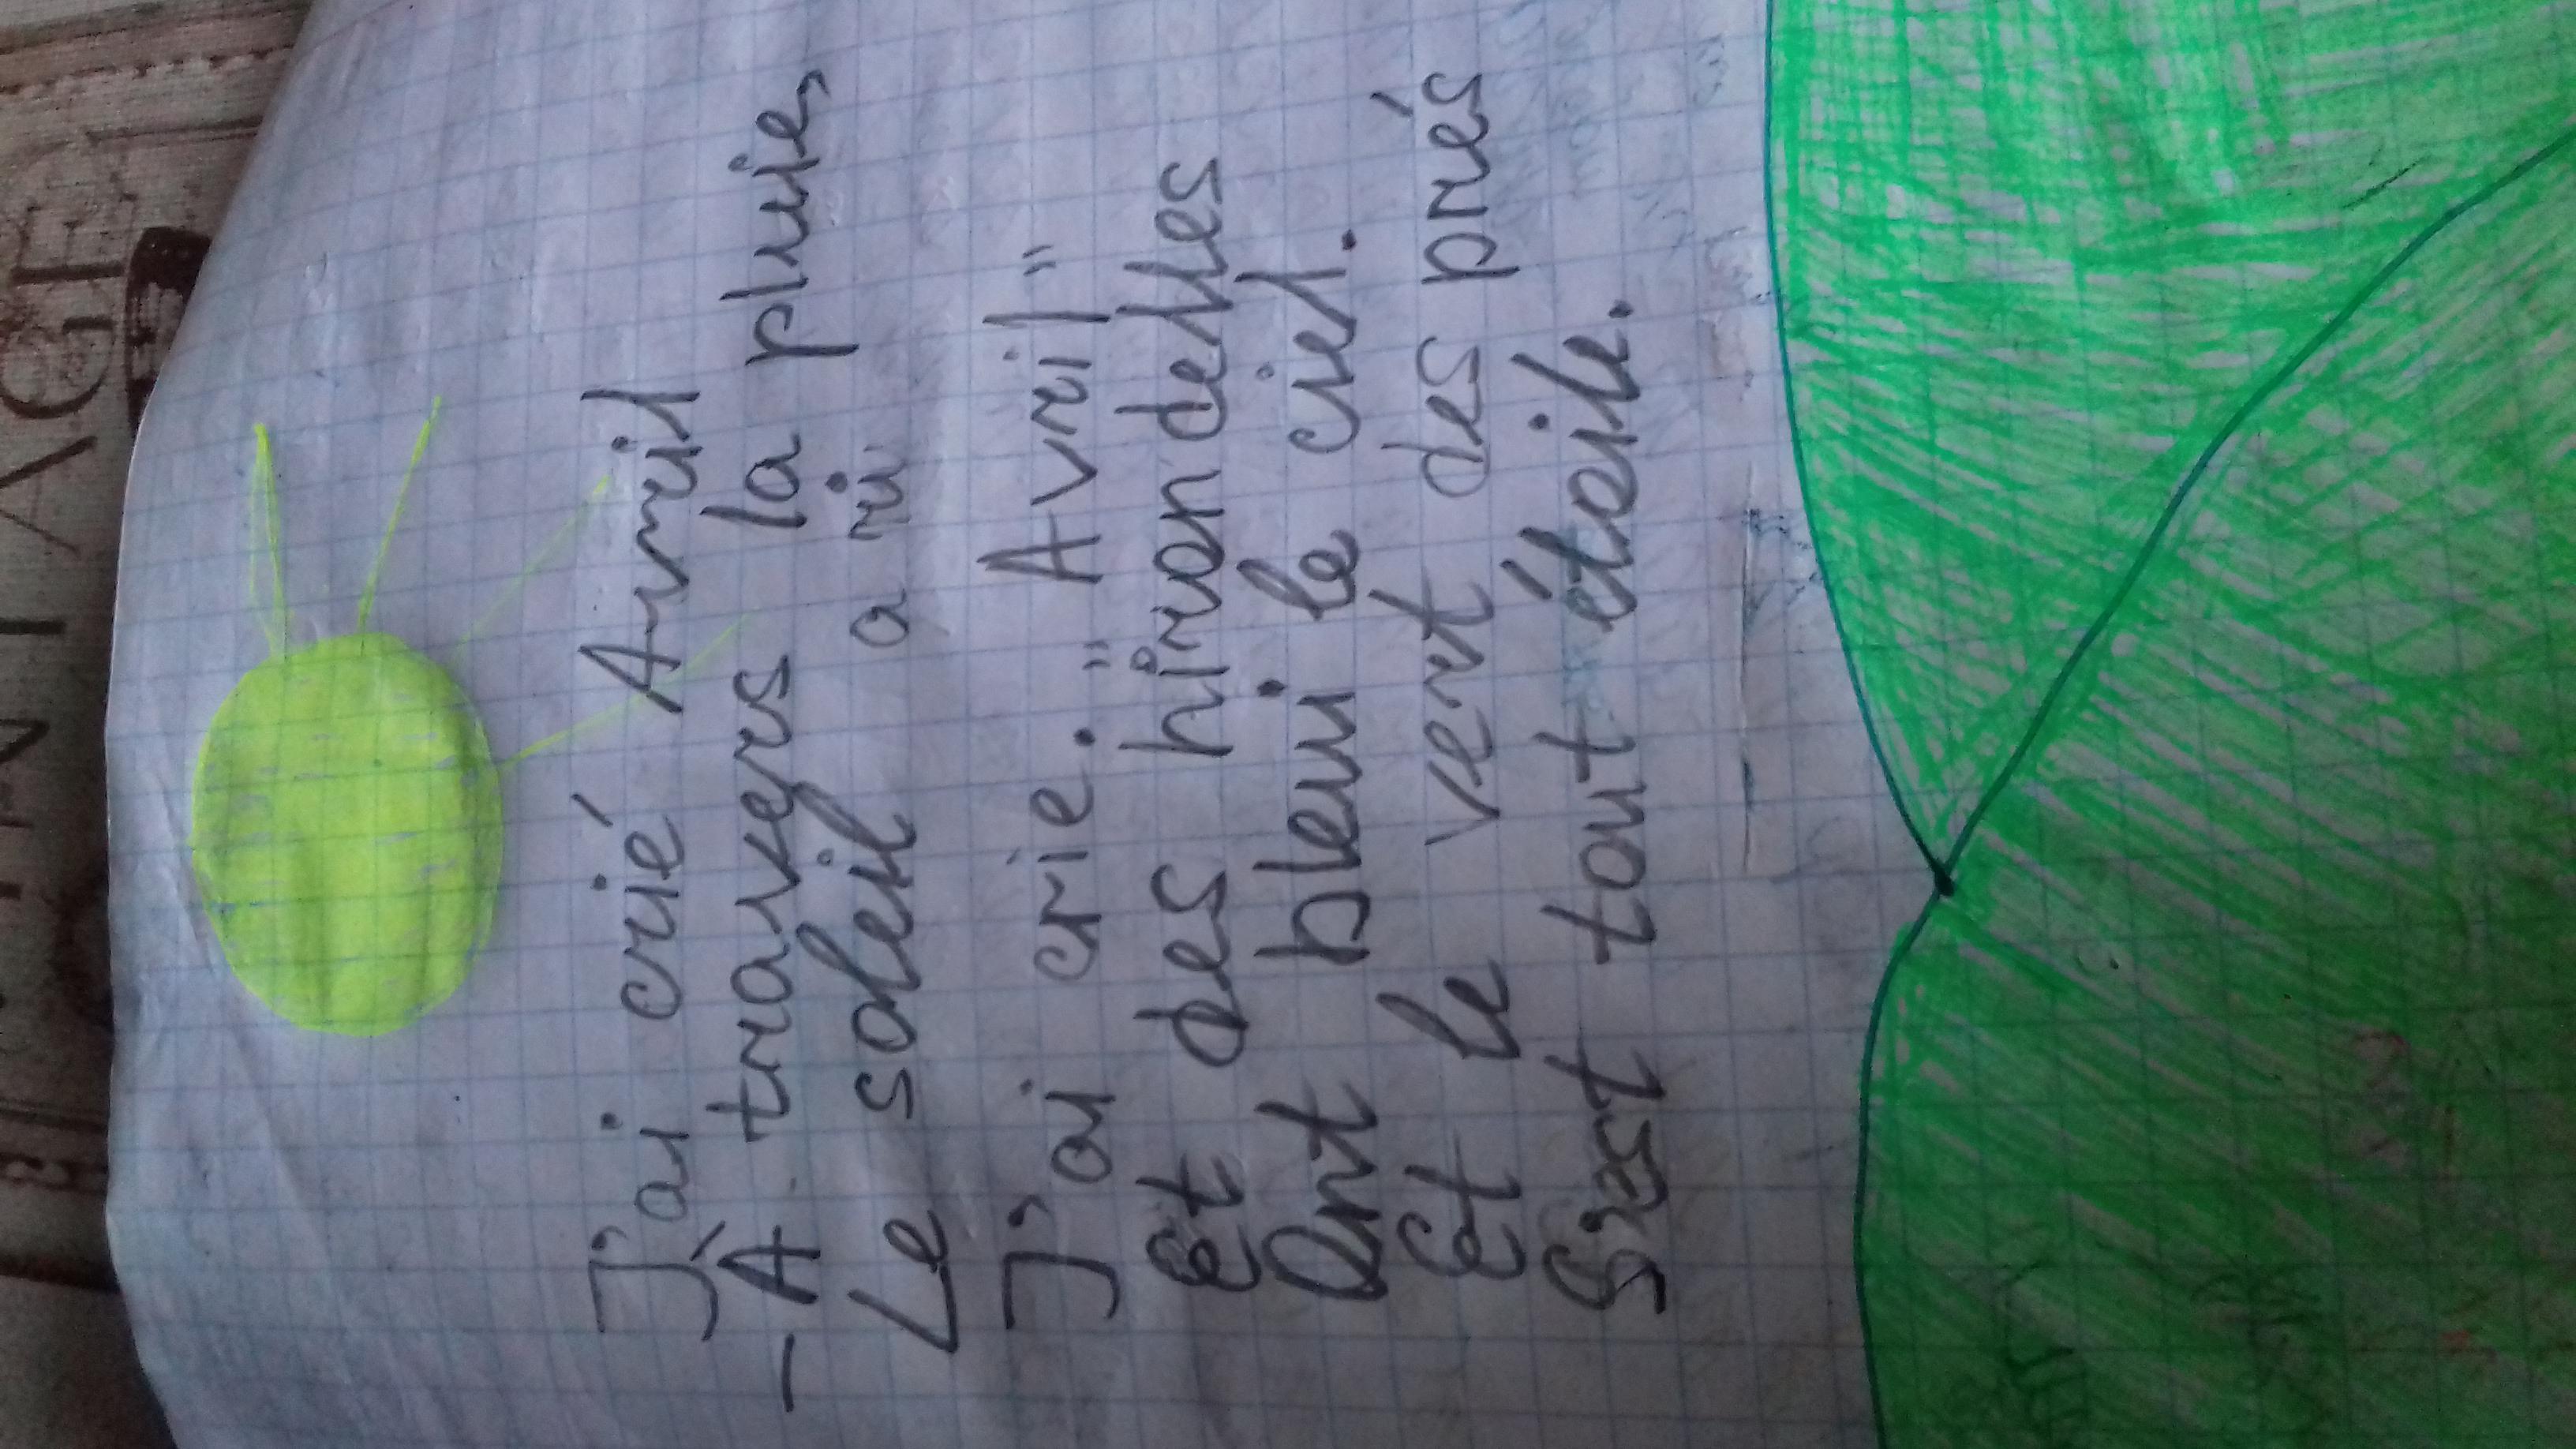 J'ai crié Avril
- À travers la pluie,
Le soleil a ri
J'ai crie: "Avril"
Et des hirondelles
Ont bleui le ciel.
Et le vert des prés
S'est tout étoilé.